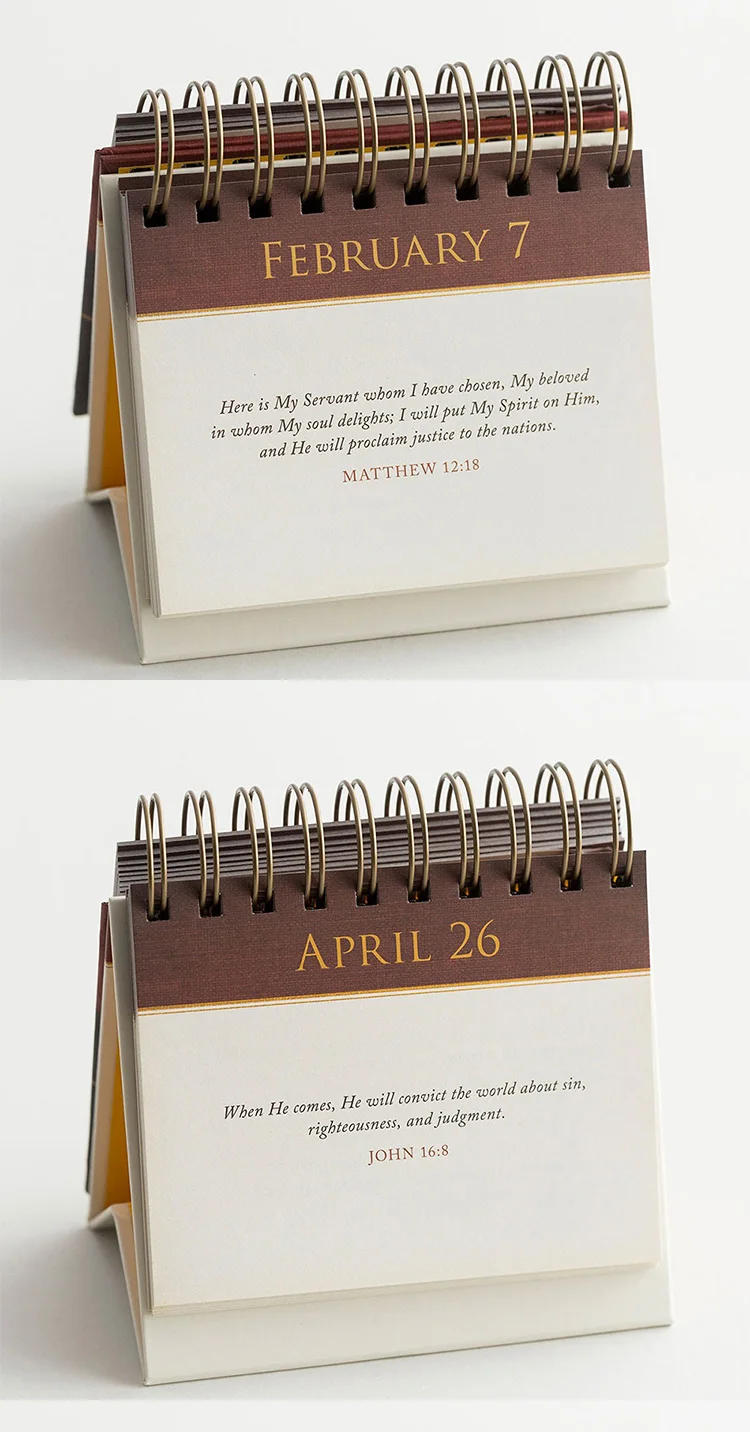 FEBRUARY 7
Here is My Servant whom I have chosen, My beloved
in whom My soul delights; I will put My Spirit on Him,
and He will proclaim justice to the nations.
MATTHEW 12:18
APRIL 26
When He comes, He will convict the world about sin,
righteousness, and judgment.
JOHN 16:8